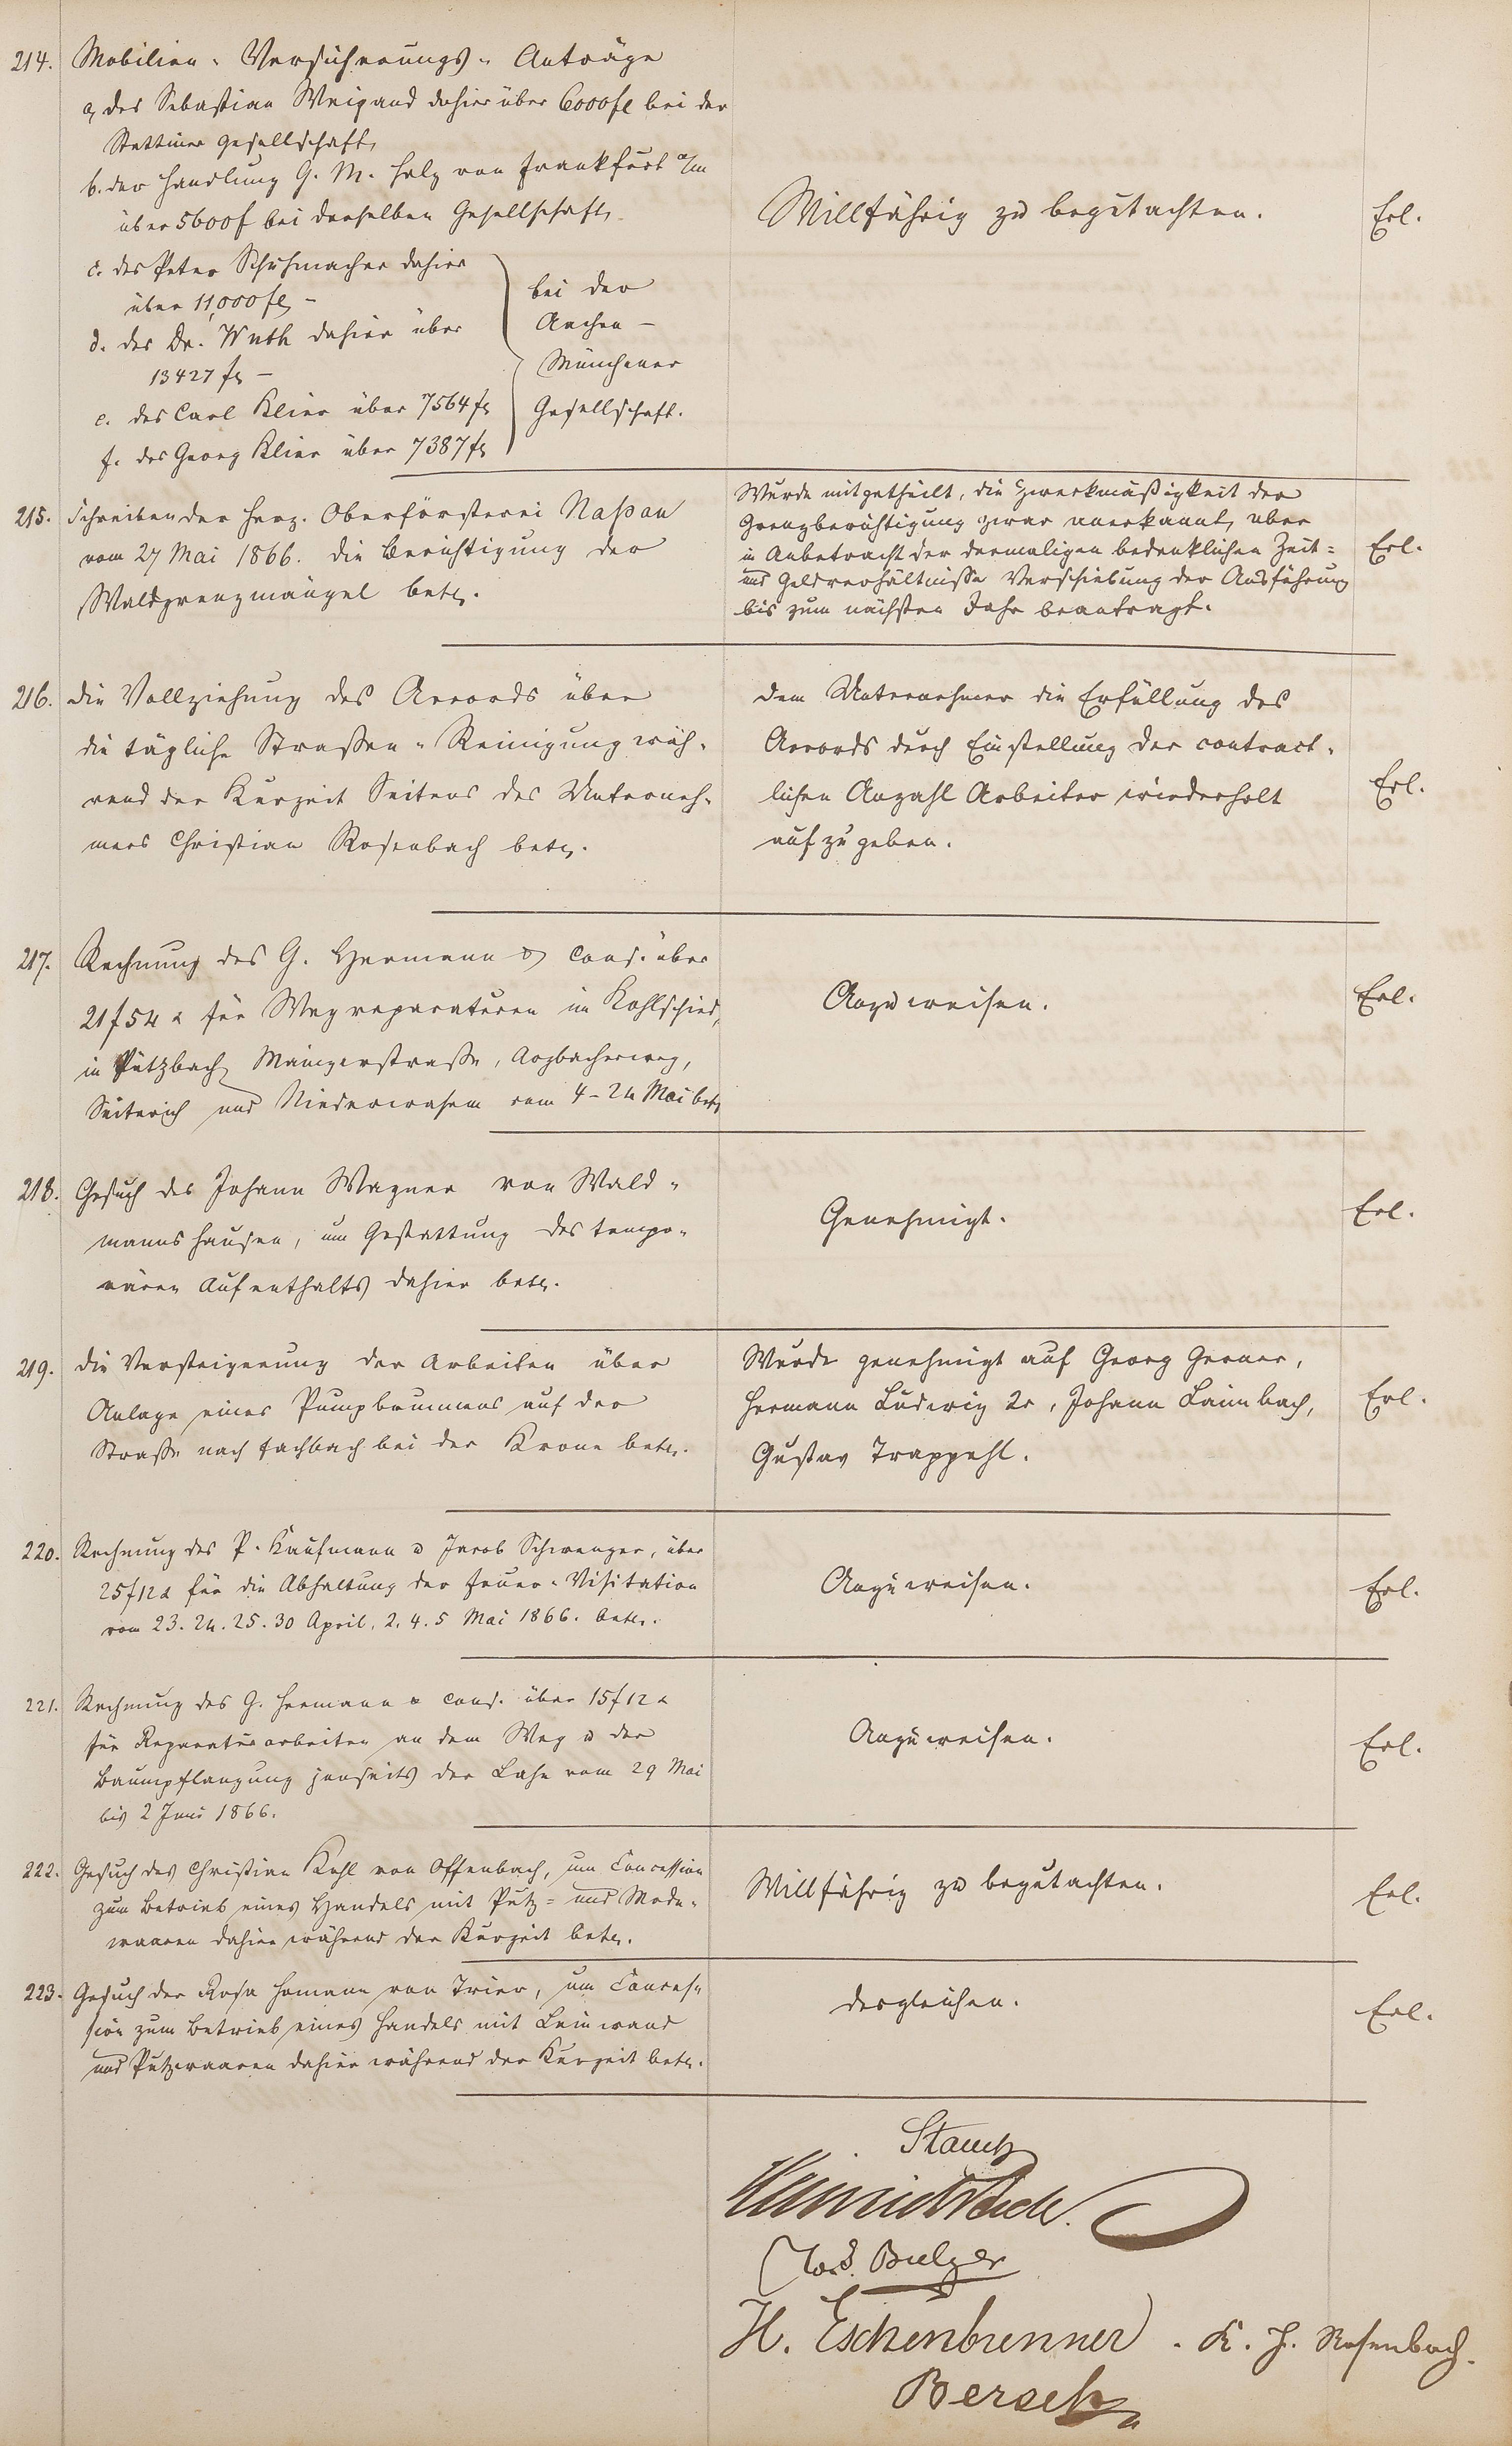 214. Mobilien-Versicherungs-Anträge
a, des Sebastian Weigand dahier über 6000 fl bei der
Stettiner Gesellschaft,
b. der Handlung G. M. Holz von Frankfurt a/m
über 5600 f bei derselben Gesellschaft,
Willfährig zu begutachten.
Erl.
c. des Peter Schuhmacher dahier
über 11,000 fl, –
d. des Dr. Wuth dahier über
13427 fl, –
e. des Carl Klier über 7564 fl,
f. des Georg Klier über 7387 fl,
bei der
Aachen –
Münchener
Gesellschaft.
215. Schreiben der Herz. Oberförsterei Nassau
vom 27 Mai 1866. die Berichtigung der
Waldgrenzmängel betr.
Wurde mitgetheilt, die Zweckmäßigkeit der
Grenzberichtigung zwar anerkannt, aber
in Anbetracht der dermaligen bedenklichen Zeit=
und Geldverhältnisse Verschiebung der Ausführung
bis zum nächsten Jahr beantragt.
Erl.
216. die Vollziehung des Accords über
die tägliche Straßen-Reinigung wäh-
rend der Kurzeit Seitens des Unterneh-
mers Christian Rosenbach betr.
dem Unternehmer die Erfüllung des
Accords durch Einstellung der contract-
lichen Anzahl Arbeiter wiederholt
aufzugeben.
Erl.
217. Rechnung des G. Hermann & Cons. über
21 f 54 x für Wegreparaturen im Kohlschied,
in Pützbach, Mainzerstraße, Arzbacherweg,
und Niederwasem vom 4-24 Mai betr.
Anzuweisen.
Erl.
218. Gesuch des Johann Wagner von Wald-
mannshausen, um Gestattung des tempo-
rären Aufenthalts dahier betr.
Genehmigt.
Erl.
219. die Versteigerung der Arbeiten über
Anlage eines Pumpbrunnens auf der
Straße nach Fachbach bei der Krone betr.
Wurde genehmigt auf Georg Gerner,
Hermann Ludwig 2r, Johann Leimbach,
Gustav Trappehl.
Erl.
220. Rechnung des P. Kaufmann u Jacob Schwenger, über
25 f 12 x für die Abhaltung der Feuer-Visitation
vom 23. 24. 25. 30 April, 2. 4. 5 Mai 1866. betr.
Anzuweisen.
Erl.
221. Rechnung des G. Hermann & Cons. über 15 f 12 x
für Reparaturarbeiten an dem Weg u der
Baumpflanzung jenseits der Lahn vom 29 Mai
bis 2 Juni 1866.
Anzuweisen.
Erl.
222. Gesuch des Christian Kehl von Offenbach, um Concession
zum Betrieb eines Handels mit Putz= und Mode-
waaren dahier während der Kurzeit betr.
Willfährig zu begutachten.
Erl.
223. Gesuch der Rosa Homann von Trier, um Conces-
sion zum Betrieb eines Handels mit Leinwand
und Putzwaaren dahier während der Kurzeit betr.
desgleichen.
Erl.
Balzer
H. Eschenbrenner. K. H. Rosenbach.
Bersch